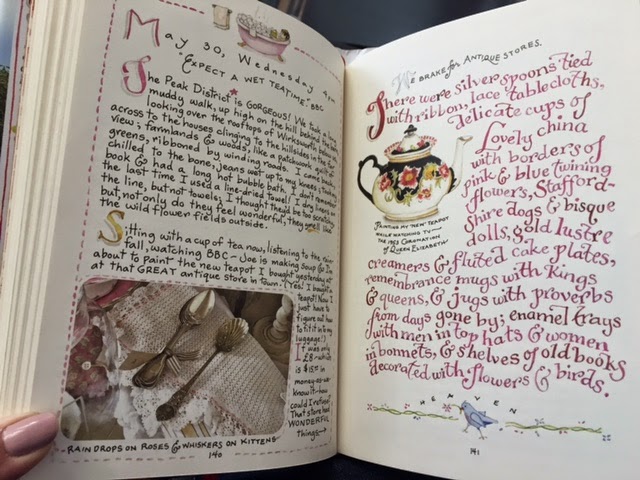 May 30, Wednesday 4pm
"EXPECT A WET TEATIME." BBC
The Peak District is GORGEOUS! We took a long,
muddy walk, up high on the hill behind the barn,
looking over the rooftops of Wirksworth and
across to the houses clinging to the hillsides in the far
view; farmlands & woods, like a patchwork quilt of
greens, ribboned by winding roads. I came back
chilled to the bone, jeans wet up to my knees; took a
book & had a long hot bubble bath. I don't remember
the last time I used a line-dried towel! I dry linens on
the line, but not towels; I thought they'd be too scratchy,
but, not only do they feel wonderful, they smell like
the wild flower fields outside.
Sitting with a cup of tea now, listening to the rain
fall, watching BBC – Joe is making soup & I'm
about to paint the new teapot I bought yesterday
at that GREAT antique store in town. (Yes! I bought a
teapot! Now I
just have to
figure out how
to fit it in my
luggage!)
It was only
£8 – which
is $15.00 in
money-as-we-
know-it – how
could I refuse?
That store had
WONDERFUL
things –
RAIN DROPS ON ROSES & WHISKERS ON KITTENS
140
WE BRAKE for ANTIQUE STORES.
There were silver spoons tied
with ribbon, lace tablecloths,
delicate cups of
Lovely china
with borders of
pink & blue twining
flowers, Stafford-
shire dogs & bisque
dolls, gold lustre
creamers & fluted cake plates,
remembrance mugs with Kings
& queens, & jugs with proverbs
from days gone by; enamel trays
with men in top hats & women
in bonnets, & shelves of old books
decorated with flowers & birds.
PAINTING MY "NEW" TEAPOT
WHILE WATCHING TV—
THE 1953 CORONATION
OF QUEEN ELIZABETH
HEAVEN
141